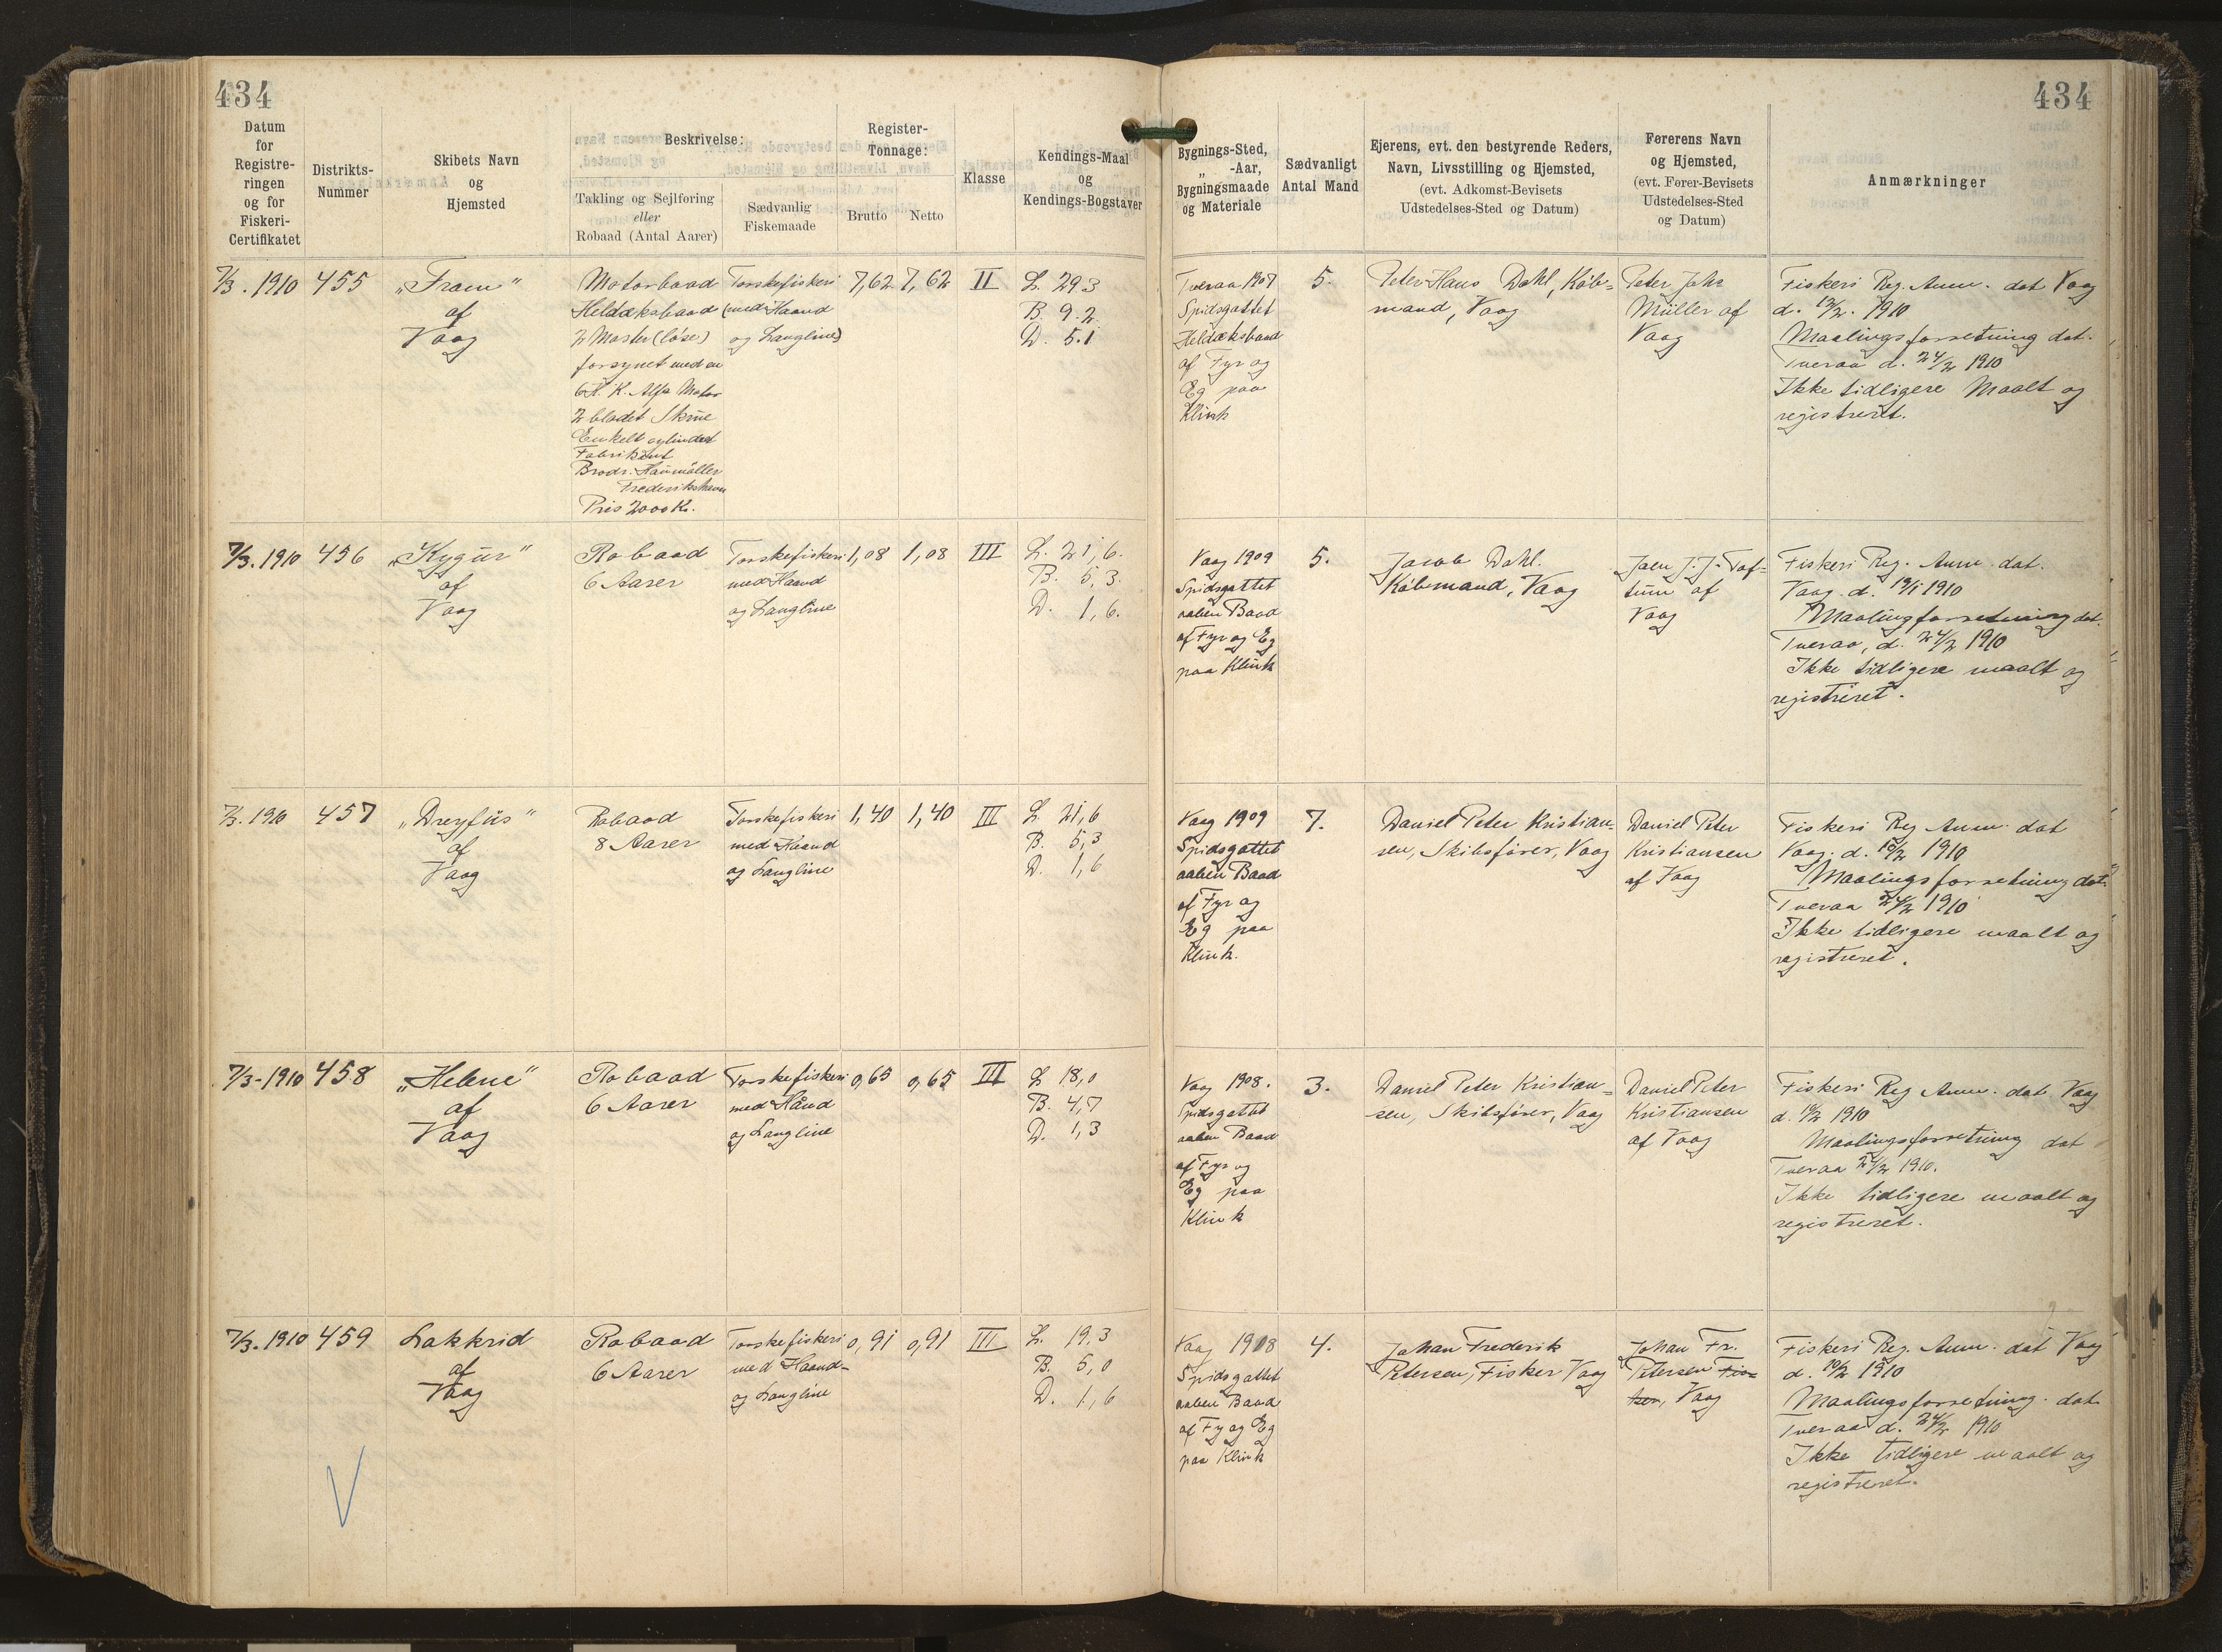 434
434
Datum
for
Registre-
ringen
og for
Fiskeri-
Certifikatet
Distrikts-
Nummer
Skibets Navn
og
Hjemsted
Beskrivelse:
Takling og Sejlføring
eller
Robaad (Antal Aarer)
Sædvanlig
Fiskemaade
Register-
Tonnage:
Brutto
Netto
Klasse
Kendings-Maal
og
Kendings-Bogstaver
Bygnings-Sted,
„ -Aar,
Bygningsmaade
og Materiale
Sædvanligt
Antal Mand
Ejerens, evt. den bestyrende Reders,
Navn, Livsstilling og Hjemsted,
(evt. Adkomst-Bevisets
Udstedelses-Sted og Datum)
Førerens Navn
og Hjemsted,
(evt. Fører-Bevisets
Udstedelses-Sted
og Datum)
Anmærkninger
7/3. 1910
455
„Fram“
af
Vaag
Motorbaad
Heldæksbaad
2 Master (løse)
forsynet med en
6 H. K. Alfa Motor
2 bladet Skrue
Enkelt cylindret
Fabrikant
Brodr. Houmöller
Frederikshavn
Pris 2000 Kr.
Torskefiskeri
(med Haand
og Langline)
7,62
7,62
II
L. 29.3
B. 9.2
D. 5.1
Tveraa 1907
Spidsgattet
Heldæksbaad
af Fyr og
Eg paa
Klink
5.
Peter Hans Dahl, Køb-
mand, Vaag
Peter Johs
Müller af
Vaag
Fiskeri Reg. Anm. dat Vaag
d. 12/2. 1910
Maalingsforretning dat.
Tveraa d. 24/2 1910
Ikke tidligere Maalt og
registreret.
7/3. 1910
456
„Kygur“
af
Vaag
Robaad
6 Aarer
Torskefiskeri
med Haand
og Langline
1,08
1,08
III
L. 21,6.
B. 5,3.
D. 1,6.
Vaag 1909
Spidsgattet
aaben Baad
af Fyr og Eg
paa Klink
5.
Jacob Dahl.
Købmand, Vaag
J. J. Tof-
tum af
Vaag
Fiskeri Reg. Anm. dat.
Vaag. d. 19/1 1910
Maalingforretning dat.
Tveraa, d. 24/2 1910
Ikke tidligere maalt og
registreret.
7/3. 1910
457
„Dreyfus“
af
Vaag
Robaad
8 Aarer
Torskefiskeri
med Haand
og Langline
1,40
1,40
III
L. 21,6
B. 5,3
D. 1,6
Vaag 1909
Spidsgattet
aaben Baad
af Fyr og
Eg paa
Klink.
7.
Daniel Peter Kristian-
sen, Skibsfører, Vaag
Daniel Peter
Kristiansen
af Vaag
Fiskeri Reg Anm. dat
Vaag. d. 1910
Maalingsforretning dat.
Tveraa 24/2 1910
Ikke tidligere maalt og
registreret.
7/3-1910
458
„Helene“
af
Vaag
Robaad
6 Aarer
Torskefiskeri
med Hånd
og Langline
0,65
0,65
III
L 18,0
B. 4,7
D. 1,3
Vaag 1908.
Spidsgattet
aaben Baad
af Fyr og
Eg paa
Klink
3.
Daniel Peter Kristian-
sen, Skibsfører, Vaag
Daniel Peter
Kristiansen
af Vaag
Fiskeri Reg Anm. dat Vaag
d. 1910
Maalingsforretning dat
Tveraa 24/2 1910.
Ikke tidligere maalt og
registreret.
7/3. 1910
459
Lakkrid
af
Vaag
Robaad
6 Aarer
Torskefiskeri
med Haand-
og Langline
0,91
0,91
III
L. 19,3
B. 5,0
D. 1,6
Vaag 1908
Spidsgattet
aaben Baad
af Fy og Eg
paa Klink
4.
Johan Frederik
Petersen, Fisker Vaag
Johan Fr.
Petersen
Vaag
Fiskeri Reg. Anm. dat Vaag
d. 1910
Maalingsforretning. dat
Tveraa d. 24/2 1910
Ikke tidligere maalt og
registreret.